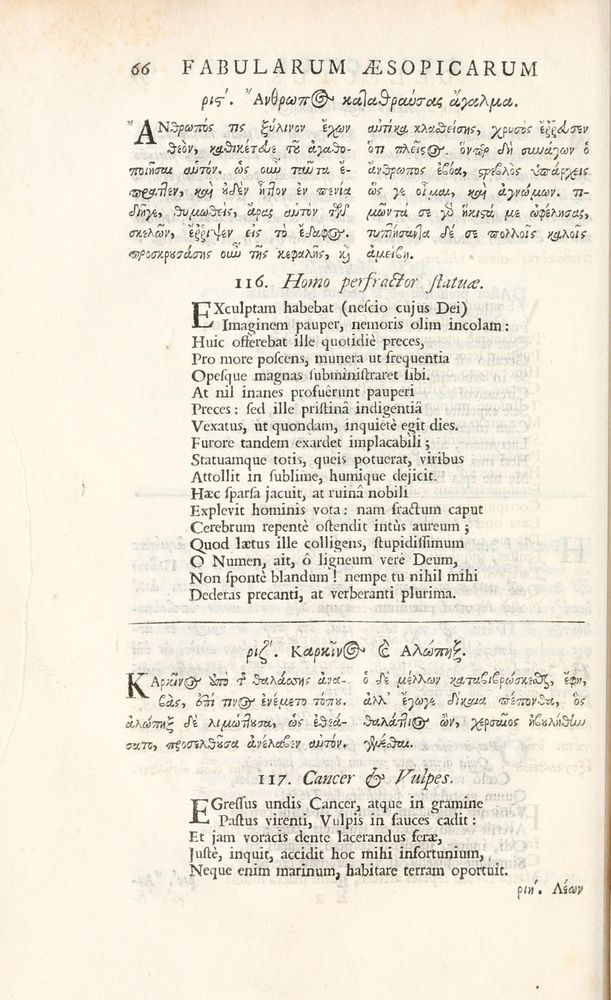 66 FABULARUM ÆSOPICARUM
ριϛʹ. Ἄνθρωπος καταθραύσας ἄγαλμα.
ἌΝθρωπός τις ξύλινον ἔχων
θεὸν, καθικέτευε τοῦ ἀγαθο-
ποιῆσαι αὐτόν. ὡς οὖν ταῦτα ἔ-
πραττεν, καὶ οὐδὲν ἧττον ἐν πενίᾳ
διῆγε, θυμωθεὶς, ἄρας αὐτὸν τῶν
σκελῶν, ἔῤῥιψεν εἰς τὸ ἔδαφος.
προσκρουσάσης οὖν τῆς κεφαλῆς, κὶ
αὐτίκα κλασθείσης, χρυσὸς ἔῤῥευσεν
ὅτι πλεῖστος. ὅνπερ δὴ συνάγων ὁ
ἄνθρωπος ἐβόα, στρεβλὸς ὑπάρχεις
ὥς γε οἶμαι, καὶ ἀγνώμων. τι-
μῶντά σε γὸ ἥκιστά με ὠφέλησας,
τυπτήσαντα δέ σε πολλοῖς καλοῖς
ἀμείβῃ.
116. Homo perfractor ſtatuæ.
EXculptam habebat (neſcio cujus Dei)
Imaginem pauper, nemoris olim incolam:
Huic offerebat ille quotidiè preces,
Pro more poſcens, munera ut frequentia
Opeſque magnas ſubminiſtraret ſibi.
At nil inanes profuêrunt pauperi
Preces: ſed ille priſtinâ indigentiâ
Vexatus, ut quondam, inquietè egit dies.
Furore tandem exardet implacabili;
Statuamque totis, queis potuerat, viribus
Attollit in ſublime, humique dejicit.
Hæc ſparſa jacuit, at ruinâ nobili
Explevit hominis vota: nam fractum caput
Cerebrum repentè oſtendit intùs aureum;
Quod lætus ille colligens, ſtupidiſſimum
O Numen, ait, ô ligneum vere Deum,
Non ſpontè blandum! nempe tu nihil mihi
Dederas precanti, at verberanti plurima.
ριζʹ. Καρκῖνος & Αλώπηξ.
ΚΑρκῖνος ἀπὸ τ θαλάσσης ἀνα-
βὰς, ἐπί τινος ἐνέμετο τόπου.
ἀλώπηξ δὲ λιμώττουσα, ὡς ἐθεά-
σατο, προσελθοῦσα ἀνέλαβεν αὐτόν.
ὁ δὲ μέλλων καταβιβρώσκεσθαι, ἔφη,
ἀλλ᾽ ἔγωγε δίκαια πέπονθα, ὃς
θαλάττιος ὢν, χερσαῖος ἠβουλήθην
γενέσθαι.
117. Cancer & Vulpes.
EGreſſus undis Cancer, atque in gramine
Paſtus virenti, Vulpis in fauces cadit:
Et jam voracis dente lacerandus feræ,
Juſtè, inquit, accidit hoc mihi infortunium,
Neque enim marinum, habitare terram oportuit.
ριηʹ. Λέων